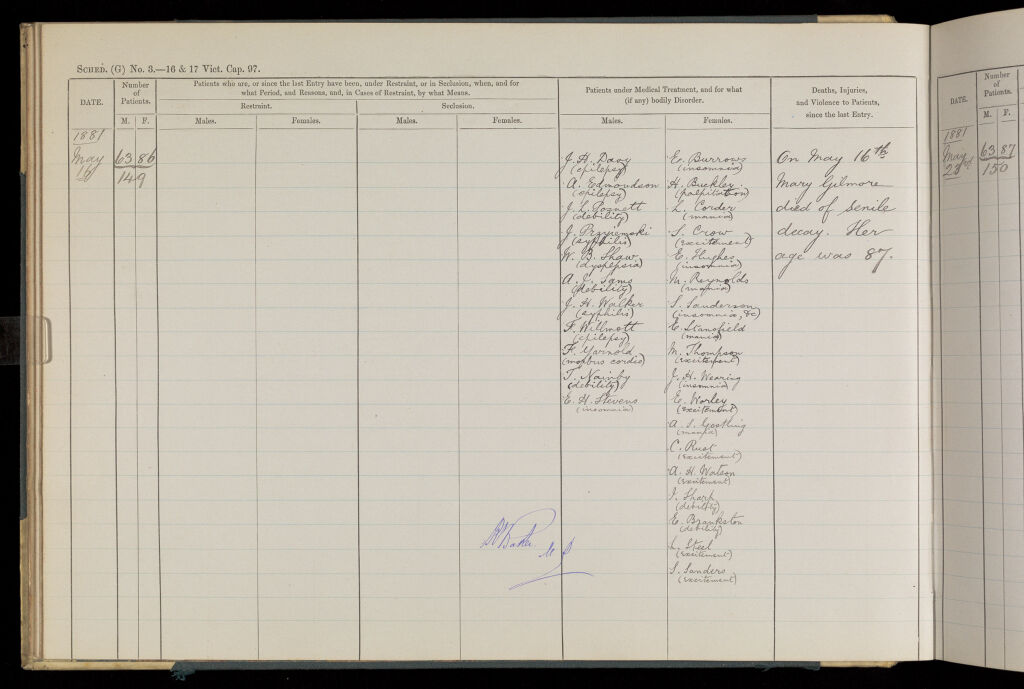 SCHED. (G) No. 3.—16 & 17 Vict. Cap. 97.
DATE.
Number
of
Patients.
M. F.
Patients who are, or since the last Entry have been, under Restraint, or in Seclusion, when, and for
what Period, and Reasons, and, in Cases of Restraint, by what Means.
Restraint.
Seclusion.
Males.
Females.
Males.
Females.
Patients under Medical Treatment, and for what
(if any) bodily Disorder.
Males.
Females.
Deaths, Injuries,
and Violence to Patients,
since the last Entry.
1881
May
16
63 86
149
J. H. Davy
(epilepsy)
A. Edmondson
(epilepsy)
J. L. Posnett
(debility)
J. Przyiemski
(syphilis)
W. B. Shaw
(dyspepsia)
A. J. Sams
(debility)
J. H. Walker
(syphilis)
F. Willmott
(epilepsy)
F. Yarnold
(morbus cordis)
T. Nainby
(debility)
E. H. Stevens
(insomnia)
E. Burrows
(insomnia)
H. Buckley
(palpitation)
L. Corder
(mania)
S. Crow
(excitement)
E. Hughes
(insomnia)
M. Reynolds
(mania)
S. Sanderson
(insomnia, &c)
E. Stansfield
(mania)
M. Thompson
(excitement)
J. H. Wearing
(insomnia)
E. Worley
(excitement)
A. S. Gostling
(mania)
C. Rust
(excitement)
A. H. Watson
(excitement)
I. Sharp
(debility)
E. Brankston
(debility)
L. Steel
(excitement)
S. Sanders
(excitement)
On May 16th
Mary Gilmore
died of senile
decay. Her
age was 87.
Baker
DATE.
Number
of
Patients.
M. F.
1881
May
23rd
63 87
150